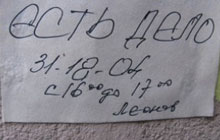 ЕСТЬ ДЕЛО
31-18-04
с 16⁰⁰ до 17⁰⁰
Леонов